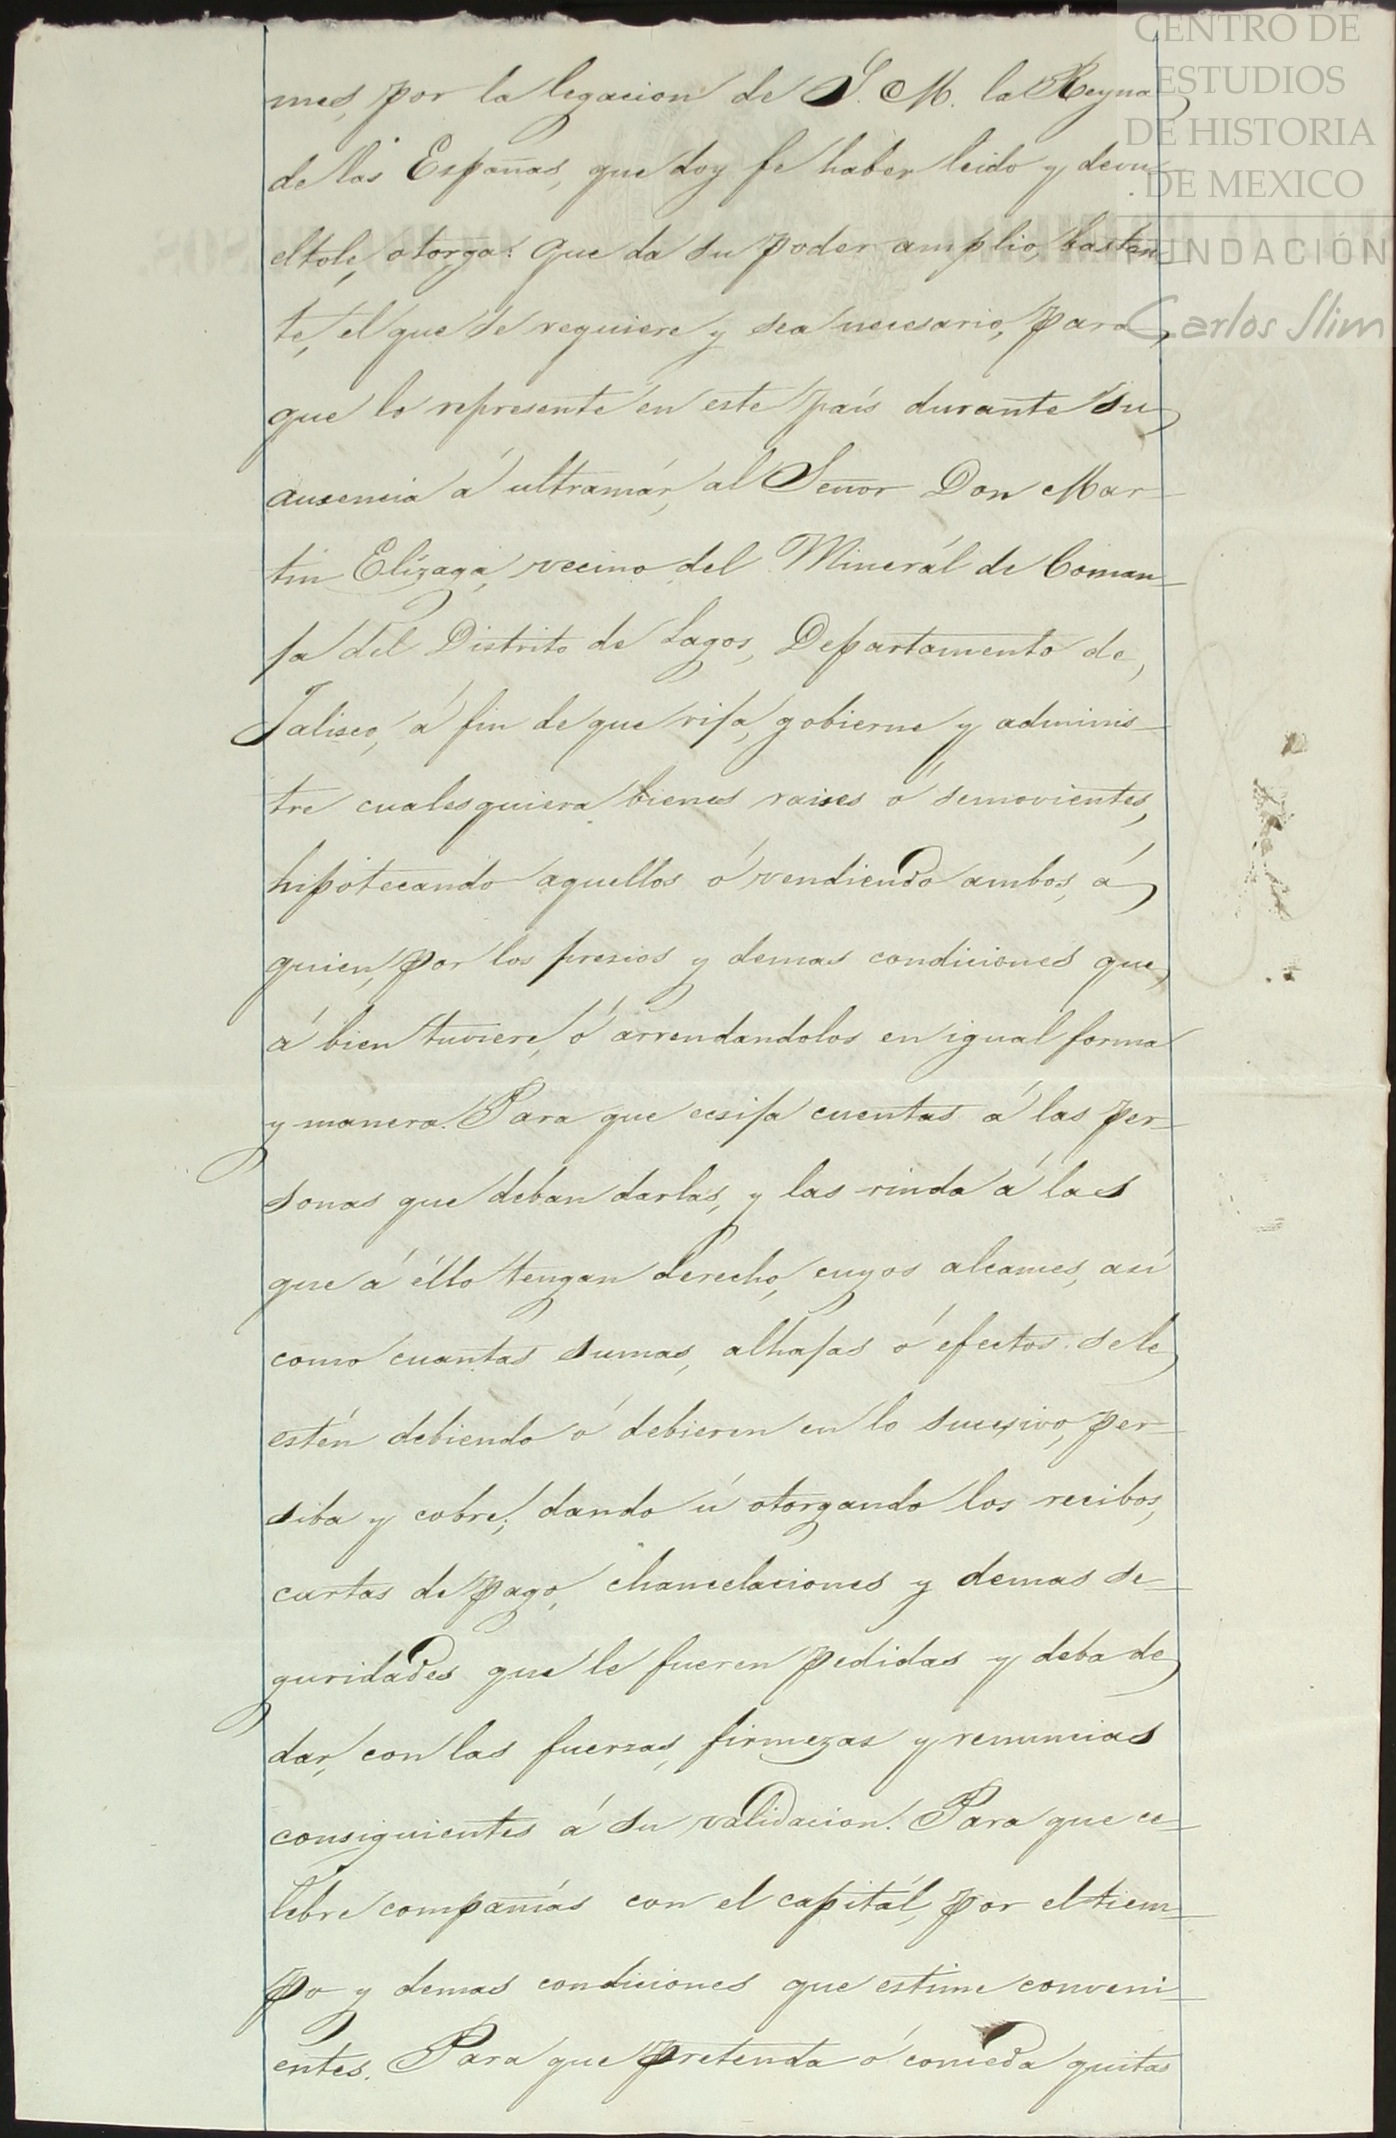 CENTRO DE
ESTUDIOS
DE HISTORIA
DE MEXICO
FUNDACIÓN
Carlos Slim
mes, por la legacion de S. M. la Reyna
de las Españas, que doy fe haber leido y devu-
eltole, otorga: Que da su poder amplio, bastan-
te, el que se requiere y sea necesario, para
que lo represente én este país durante su
ausencia á ultramár, al Señor Don Mar-
tin Elízaga, vecino del Minerál de Coman-
ja del Distrito de Lagos, Departamento de
Jalisco, á fin de que rija, gobierne y adminis-
tre cualesquiera bienes raises ó semovientes,
hipotecando aquellos ó vendiendo ambos, á
quien, por los presios y demas condiciones que
á bien tuviere, ó arrendandolos en igual forma
y manera. Para que ecsija cuentas á las per-
sonas que deban darlas, y las rinda á las
que á éllo tengan derecho, cuyos alcances, así
como cuantas sumas, alhajas ó efectos se le
estén debiendo ó debieren en lo sucesivo, per-
siba y cobre; dando ú otorgando los recibos,
cartas de pago, chancelaciones y demas se-
guridades que le fueren pedidas y deba de
dar, con las fuerzas, firmezas y renuncias
consiguientes á su validacion. Para que ce-
lebre compañías con el capitál, por el tiem-
po y demas condiciones que estime conveni-
entes. Para que pretenda ó conceda quitas